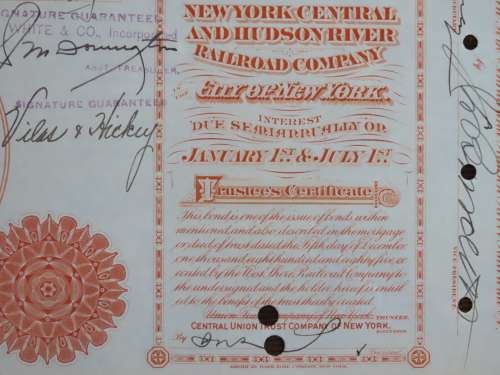 SIGNATURE GUARANTEED
WHITE & CO., Incorporated
ASST. TREASURER.
SIGNATURE GUARANTEED
Vilas & Hickey
NEW YORK CENTRAL
AND HUDSON RIVER
RAILROAD COMPANY
IN THE
CITY OF NEW YORK.
INTEREST
DUE SEMIANNUALLY ON
JANUARY 1ST. & JULY 1ST.
Trustee's Certificate
This bond is one of the issue of bonds within
mentioned and also described in the mortgage
or deed of trust dated the fifth day of December
one thousand eight hundred and eighty five ex-
ecuted by the West Shore Railroad Company to
the undersigned and the holder hereof is entitl-
ed to the benefit of the trust thereby created.
Union Trust Company of New York, TRUSTEE
CENTRAL UNION TRUST COMPANY OF NEW YORK,
SUCCESSOR
By
AMERICAN BANK NOTE COMPANY, NEW YORK.
by
VICE PRESIDENT